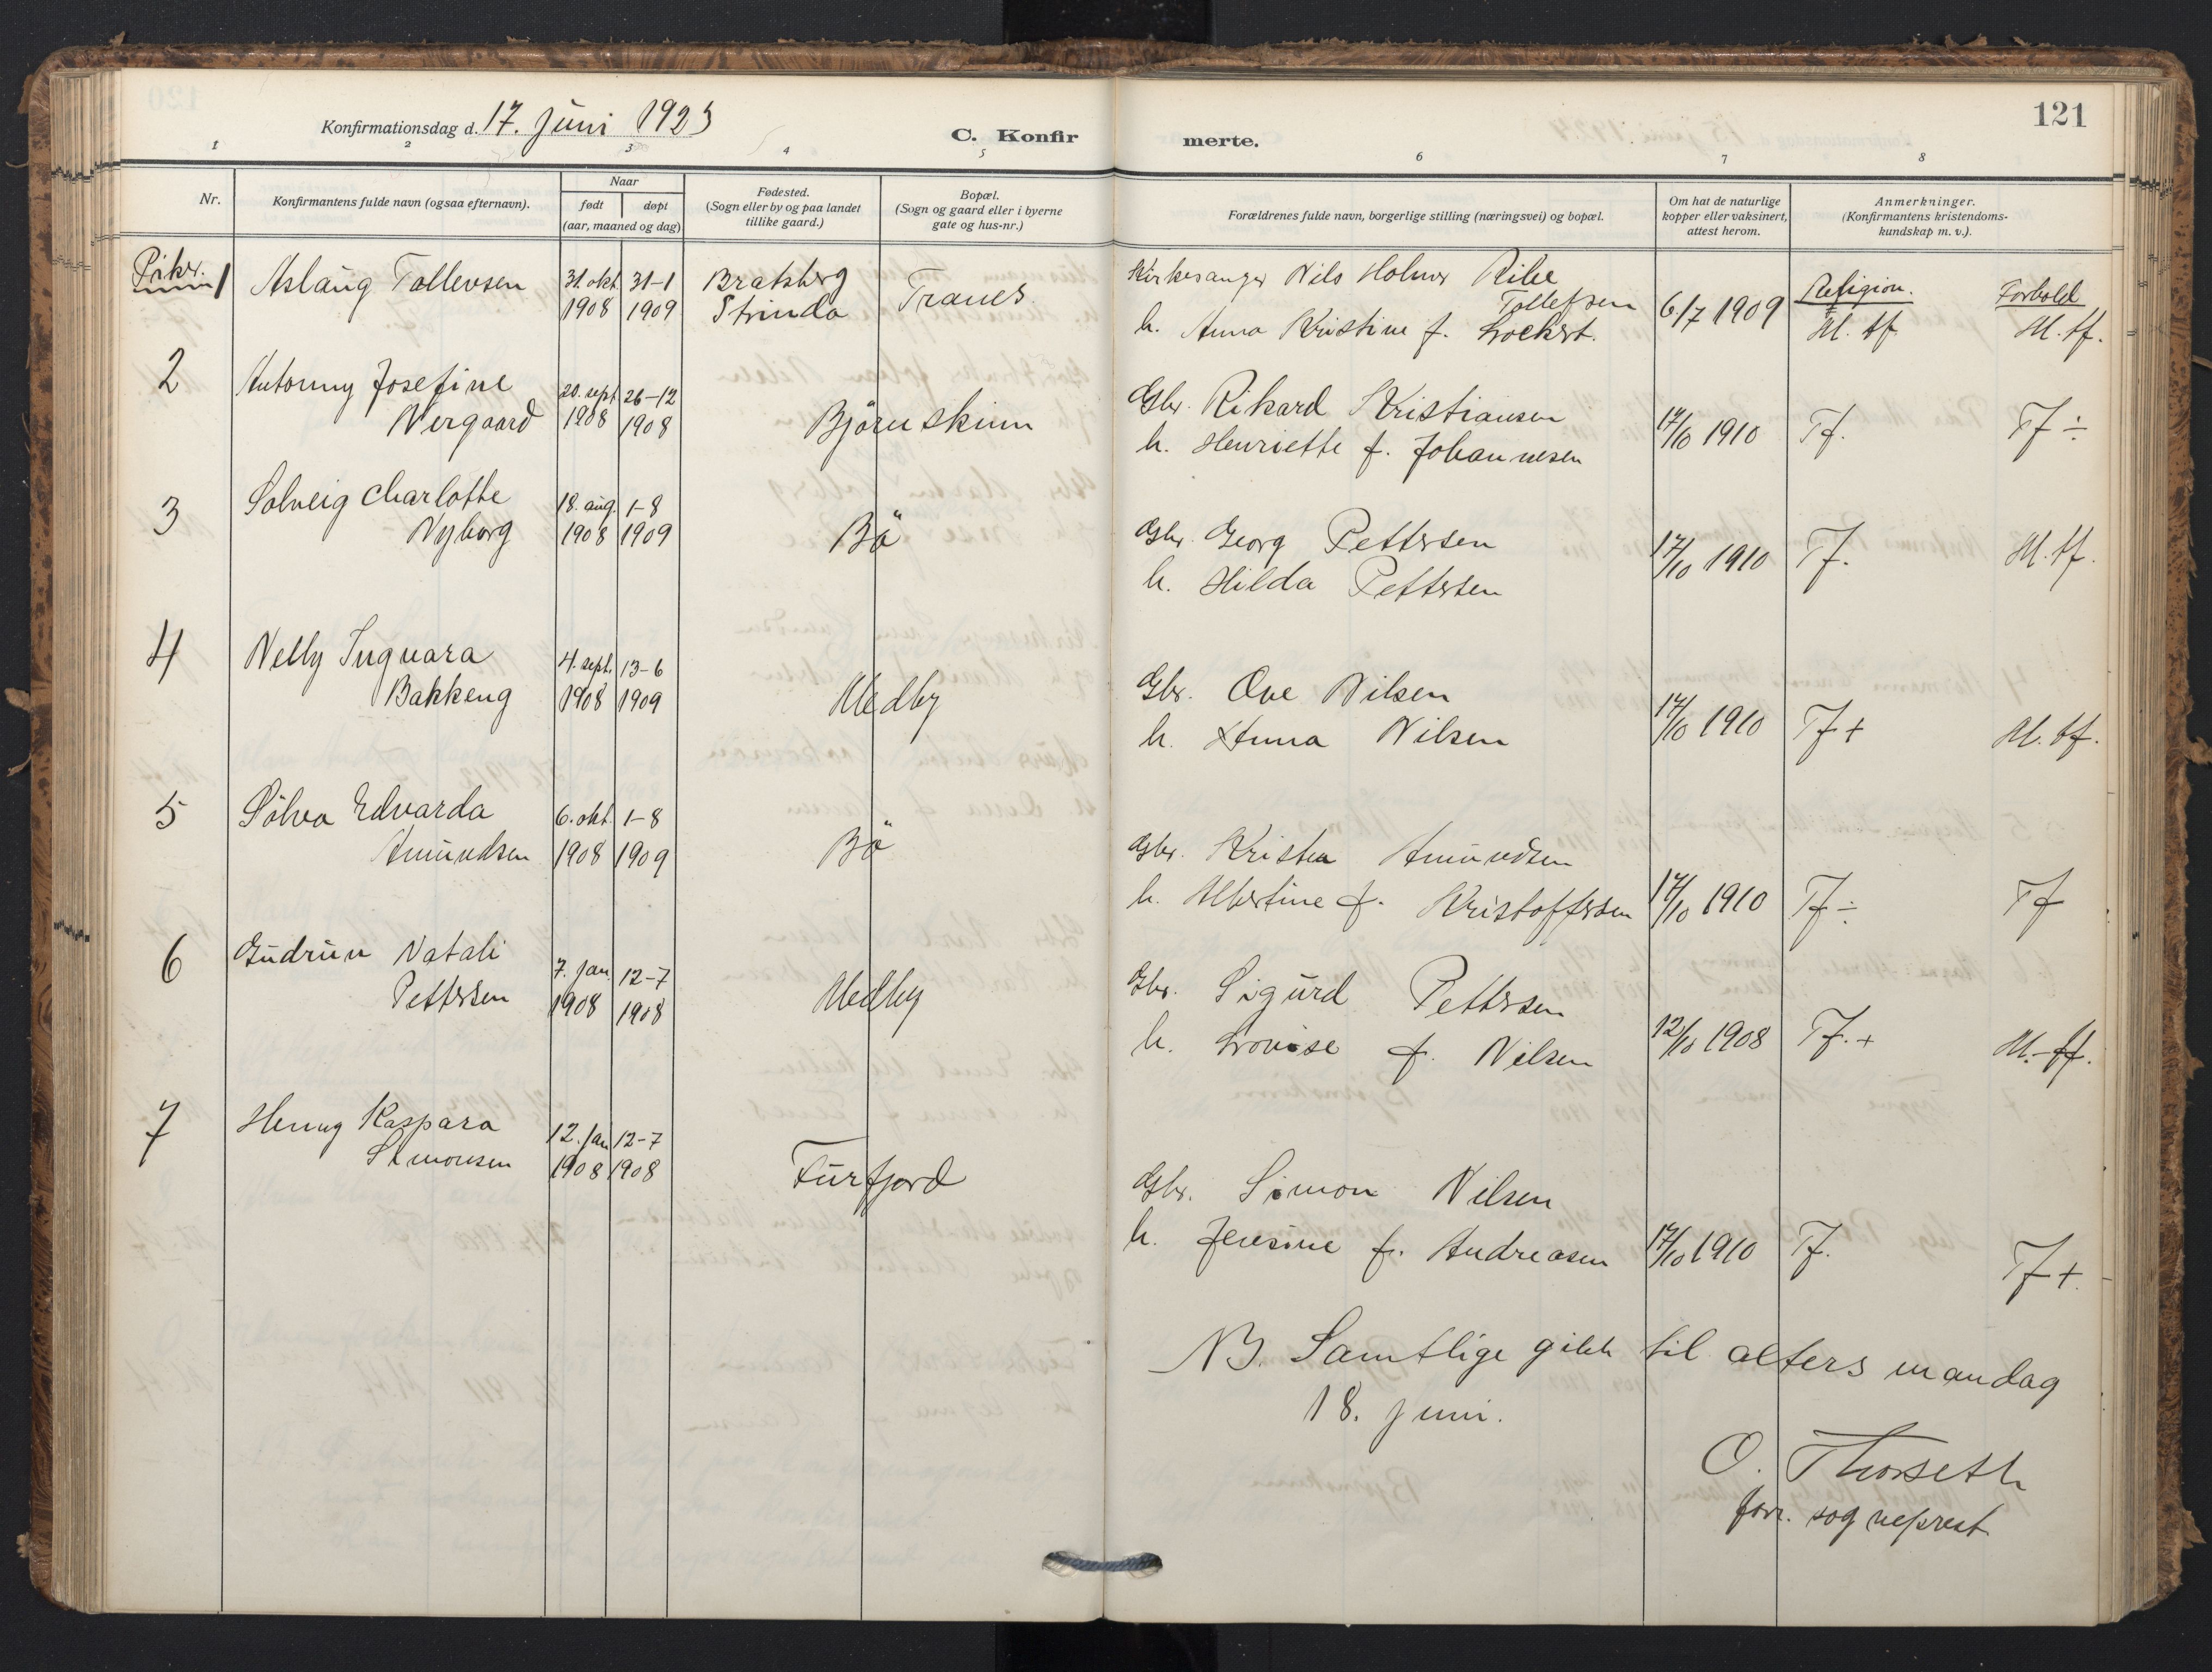 121
Konfirmationsdag d. 17. juni 1923
C. Konfir merte.
1 2 3 4 5 6 7 8
Nr.
Konfirmantens fulde navn (ogsaa efternavn).
Naar
født døpt
(aar, maaned og dag)
Fødested.
(Sogn eller by og paa landet
tillike gaard.)
Bopæl.
(Sogn og gaard eller i byerne
gate og hus-nr.)
Forældrenes fulde navn, borgerlige stilling (næringsvei) og bopæl.
Om hat de naturlige
kopper eller vaksinert,
attest herom.
Anmerkninger.
(Konfirmantens kristendoms-
kundskap m. v.).
Piker. Religion. Forhold
1 Aslaug Tollevsen 31. okt. 31-1 Bratsberg Tranes. Kirkesanger Nils Holmer
1908 1909 Strinda Tollefsen 6/7 1909 M. tf. M. tf.
h. Anna Kristine f. Lockert.
2 Antonny Josefine 20. sept. 26-12 Gbr. Rikard Kristiansen
Nergaard 1908 1908 Björnskinn 17/10 1910 Tf. Tf ÷
h. Henriette f. Johannesen
3 Solveig Charlotte 18. aug. 1-8 Gbr. Georg Pettersen
Nyborg 1908 1909 Bö 17/10 1910 Tf. M. tf.
h. Hilda Pettersen
4 Nelly Ingvara 4. sept. 13-6 Gbr. Ove Nilsen
Bakkeng 1908 1909 Medby 17/10 1910 Tf + M. tf.
h. Anna Nilsen
5 Sölva Edvarda 6. okt. 1-8 Gbr. Kristen Amundsen
Amundsen 1908 1909 Bö
h. Albertine f. Kristoffersen 17/10 1910 Tf ÷ Tf
6 Gudrun Natali 7. jan. 12-7 Gbr. Sigurd Pettersen
Pettersen 1908 1908 Medby
h. Lovise f. Nilsen 12/10 1908 Tf. + M. tf.
7 Henny Kaspara 12. jan 12-7
Simonsen 1908 1908 Furfjord Gbr. Simon Nilsen
h. Jensine f. Andreasen 17/10 1910 Tf. Tf +
NB. Samtlige gikk til alters mandag
18. juni.
O. Thorseth
forr. sogneprest